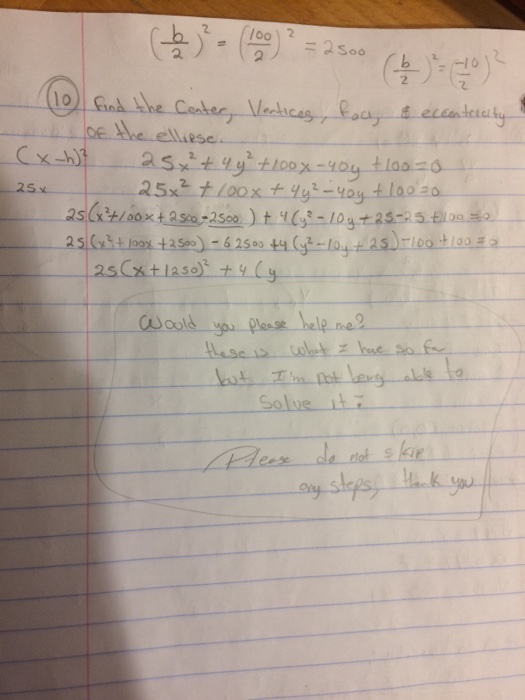 (b/2)² = (100/2)² = 2500
(b/2)² = (-10/2)²
10) Find the Center, Vertices, Foci, & eccentricity
of the ellipse.
(x-h)² 25x² + 4y² + 100x - 40y + 100 = 0
25x 25x² + 100x + 4y² - 40y + 100 = 0
25(x² + 100x + 2500 - 2500) + 4(y² - 10y + 25 - 25 + 100 = 0
25(x² + 100x + 2500) - 62500 + 4(y² - 10y + 25) - 100 + 100 = 0
25(x + 1250)² + 4(y
Would you please help me?
these is what I have so far
but I'm not being able to
solve it:
Please do not skip
any steps, thank you